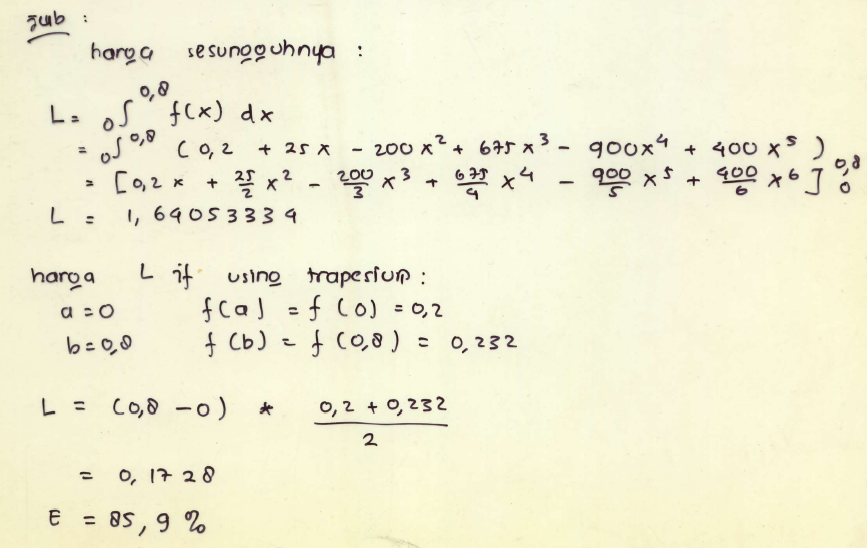 Jwb :
harga sesungguhnya :
L = ₀∫^0,8 f(x) dx
= ₀∫^0,8 ( 0,2 + 25x - 200x² + 675x³ - 900x⁴ + 400x⁵ )
= [0,2x + 25/2 x² - 200/3 x³ + 675/4 x⁴ - 900/5 x⁵ + 400/6 x⁶]₀^0,8
L = 1,64053334
harga L if using trapesium :
a = 0 f(a) = f(0) = 0,2
b = 0,8 f(b) = f(0,8) = 0,232
L = (0,8 - 0) * (0,2 + 0,232)/2
= 0,1728
E = 85,9 %